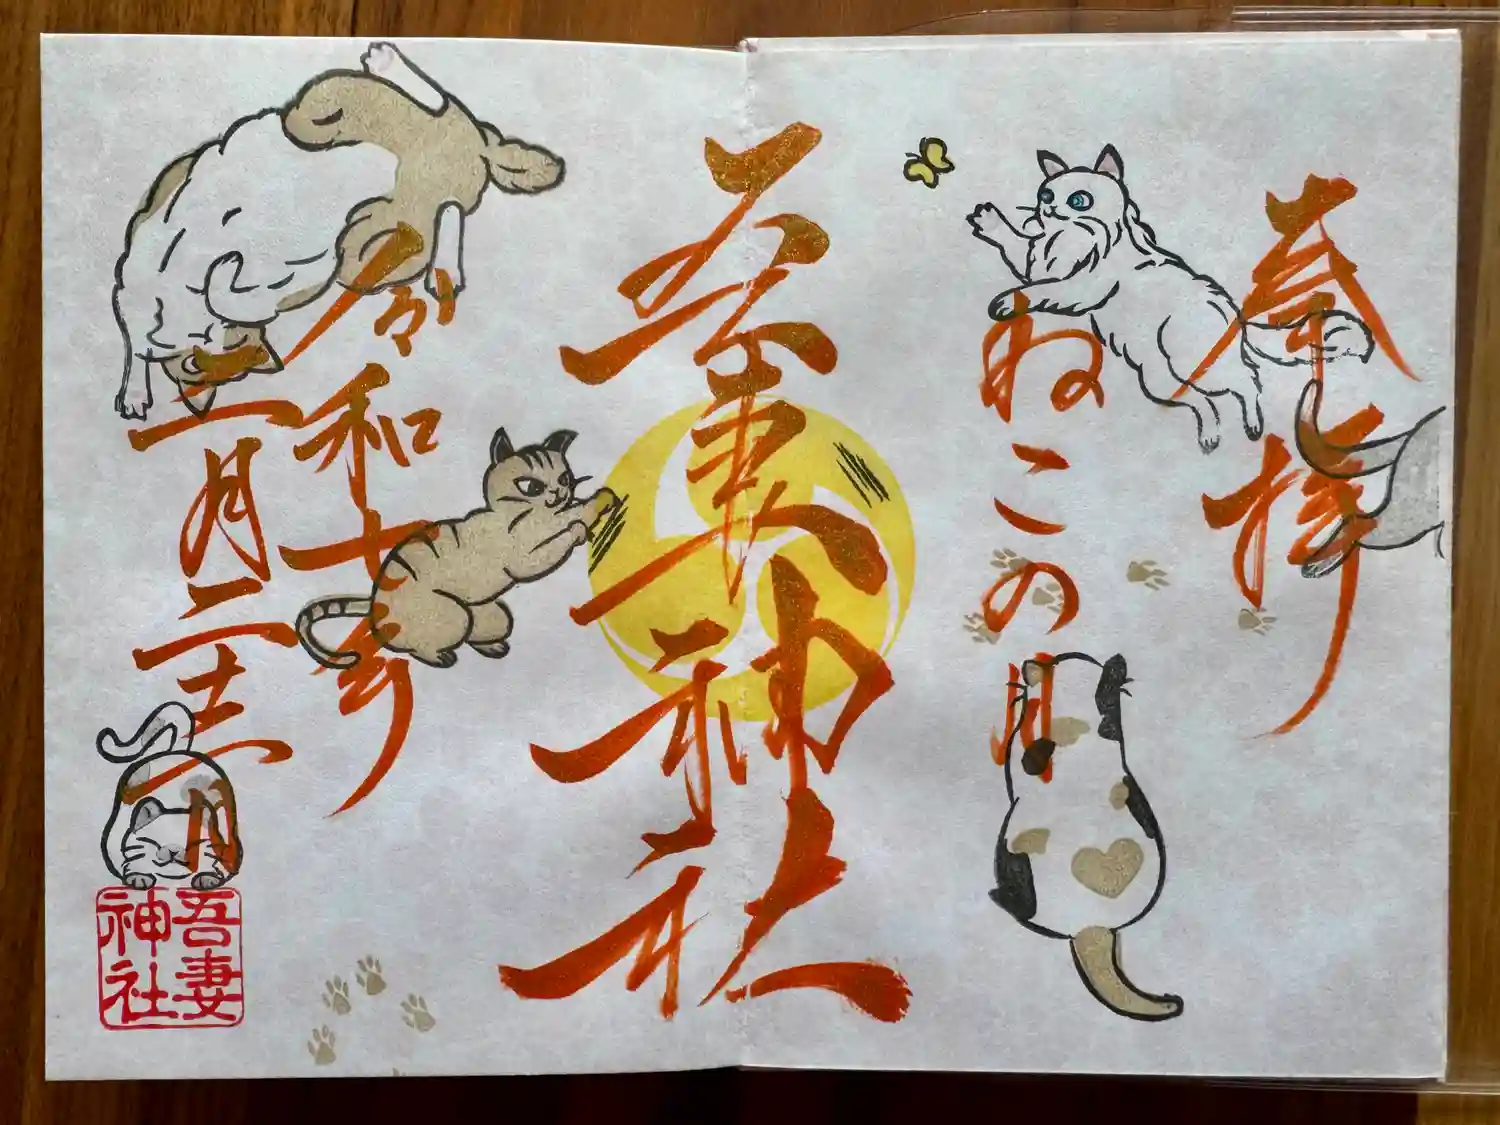 奉拝
ねこの日
吾妻神社
令和七年
二月二十二日
吾妻
神社